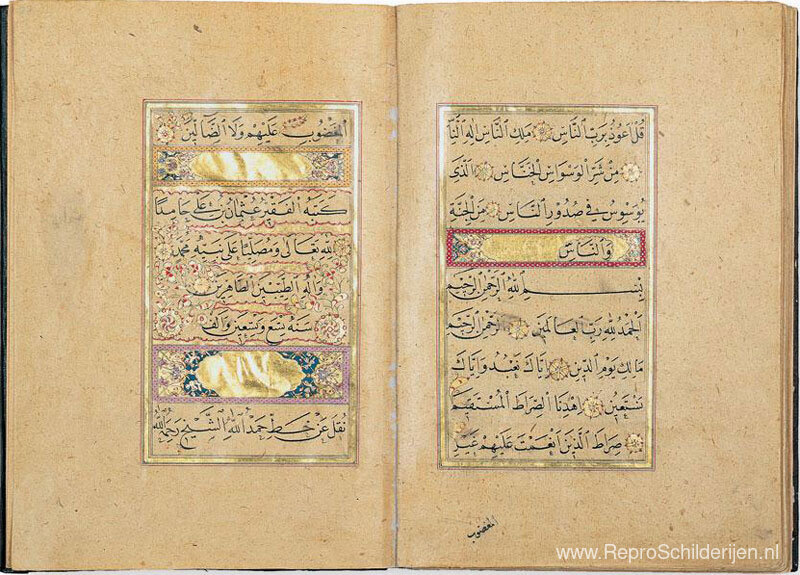 قُلْ اَعُوذُ بِرَبِّ النَّاسِ مَلِكِ النَّاسِ اِلٰهِ النَّاسِ
مِنْ شَرِّ الْوَسْوَاسِ الْخَنَّاسِ اَلَّذٖى
يُوَسْوِسُ فٖى صُدُورِ النَّاسِ مِنَ الْجِنَّةِ
وَالنَّاسِ
بِسْمِ اللّٰهِ الرَّحْمٰنِ الرَّحٖيمِ
اَلْحَمْدُ لِلّٰهِ رَبِّ الْعَالَمٖينَ اَلرَّحْمٰنِ الرَّحٖيمِ
مَالِكِ يَوْمِ الدّٖينِ اِيَّاكَ نَعْبُدُ وَاِيَّاكَ
نَسْتَعٖينُ اِهْدِنَا الصِّرَاطَ الْمُسْتَقٖيمَ
صِرَاطَ الَّذٖينَ اَنْعَمْتَ عَلَيْهِمْ غَيْرِ
المغضوب
الْمَغْضُوبِ عَلَيْهِمْ وَلَا الضَّالّٖينَ
كَتَبَهُ الْفَقٖيرُ عُثْمَانُ بْنُ عَلِى حَامِدًا
لِلّٰهِ تَعَالٰى وَمُصَلِّيًا عَلٰى نَبِيِّهِ مُحَمَّدٍ
وَاٰلِهِ الطَّيِّبٖينَ الطَّاهِرٖينَ
سَنَةِ تِسْعٍ وَتِسْعٖينَ وَاَلْفٍ
نُقِلَ عَنْ خَطِّ حَمْدُ اللّٰهِ الشَّيْخِ رَحِمَهُ اللّٰهُ
www.ReproSchilderijen.nl